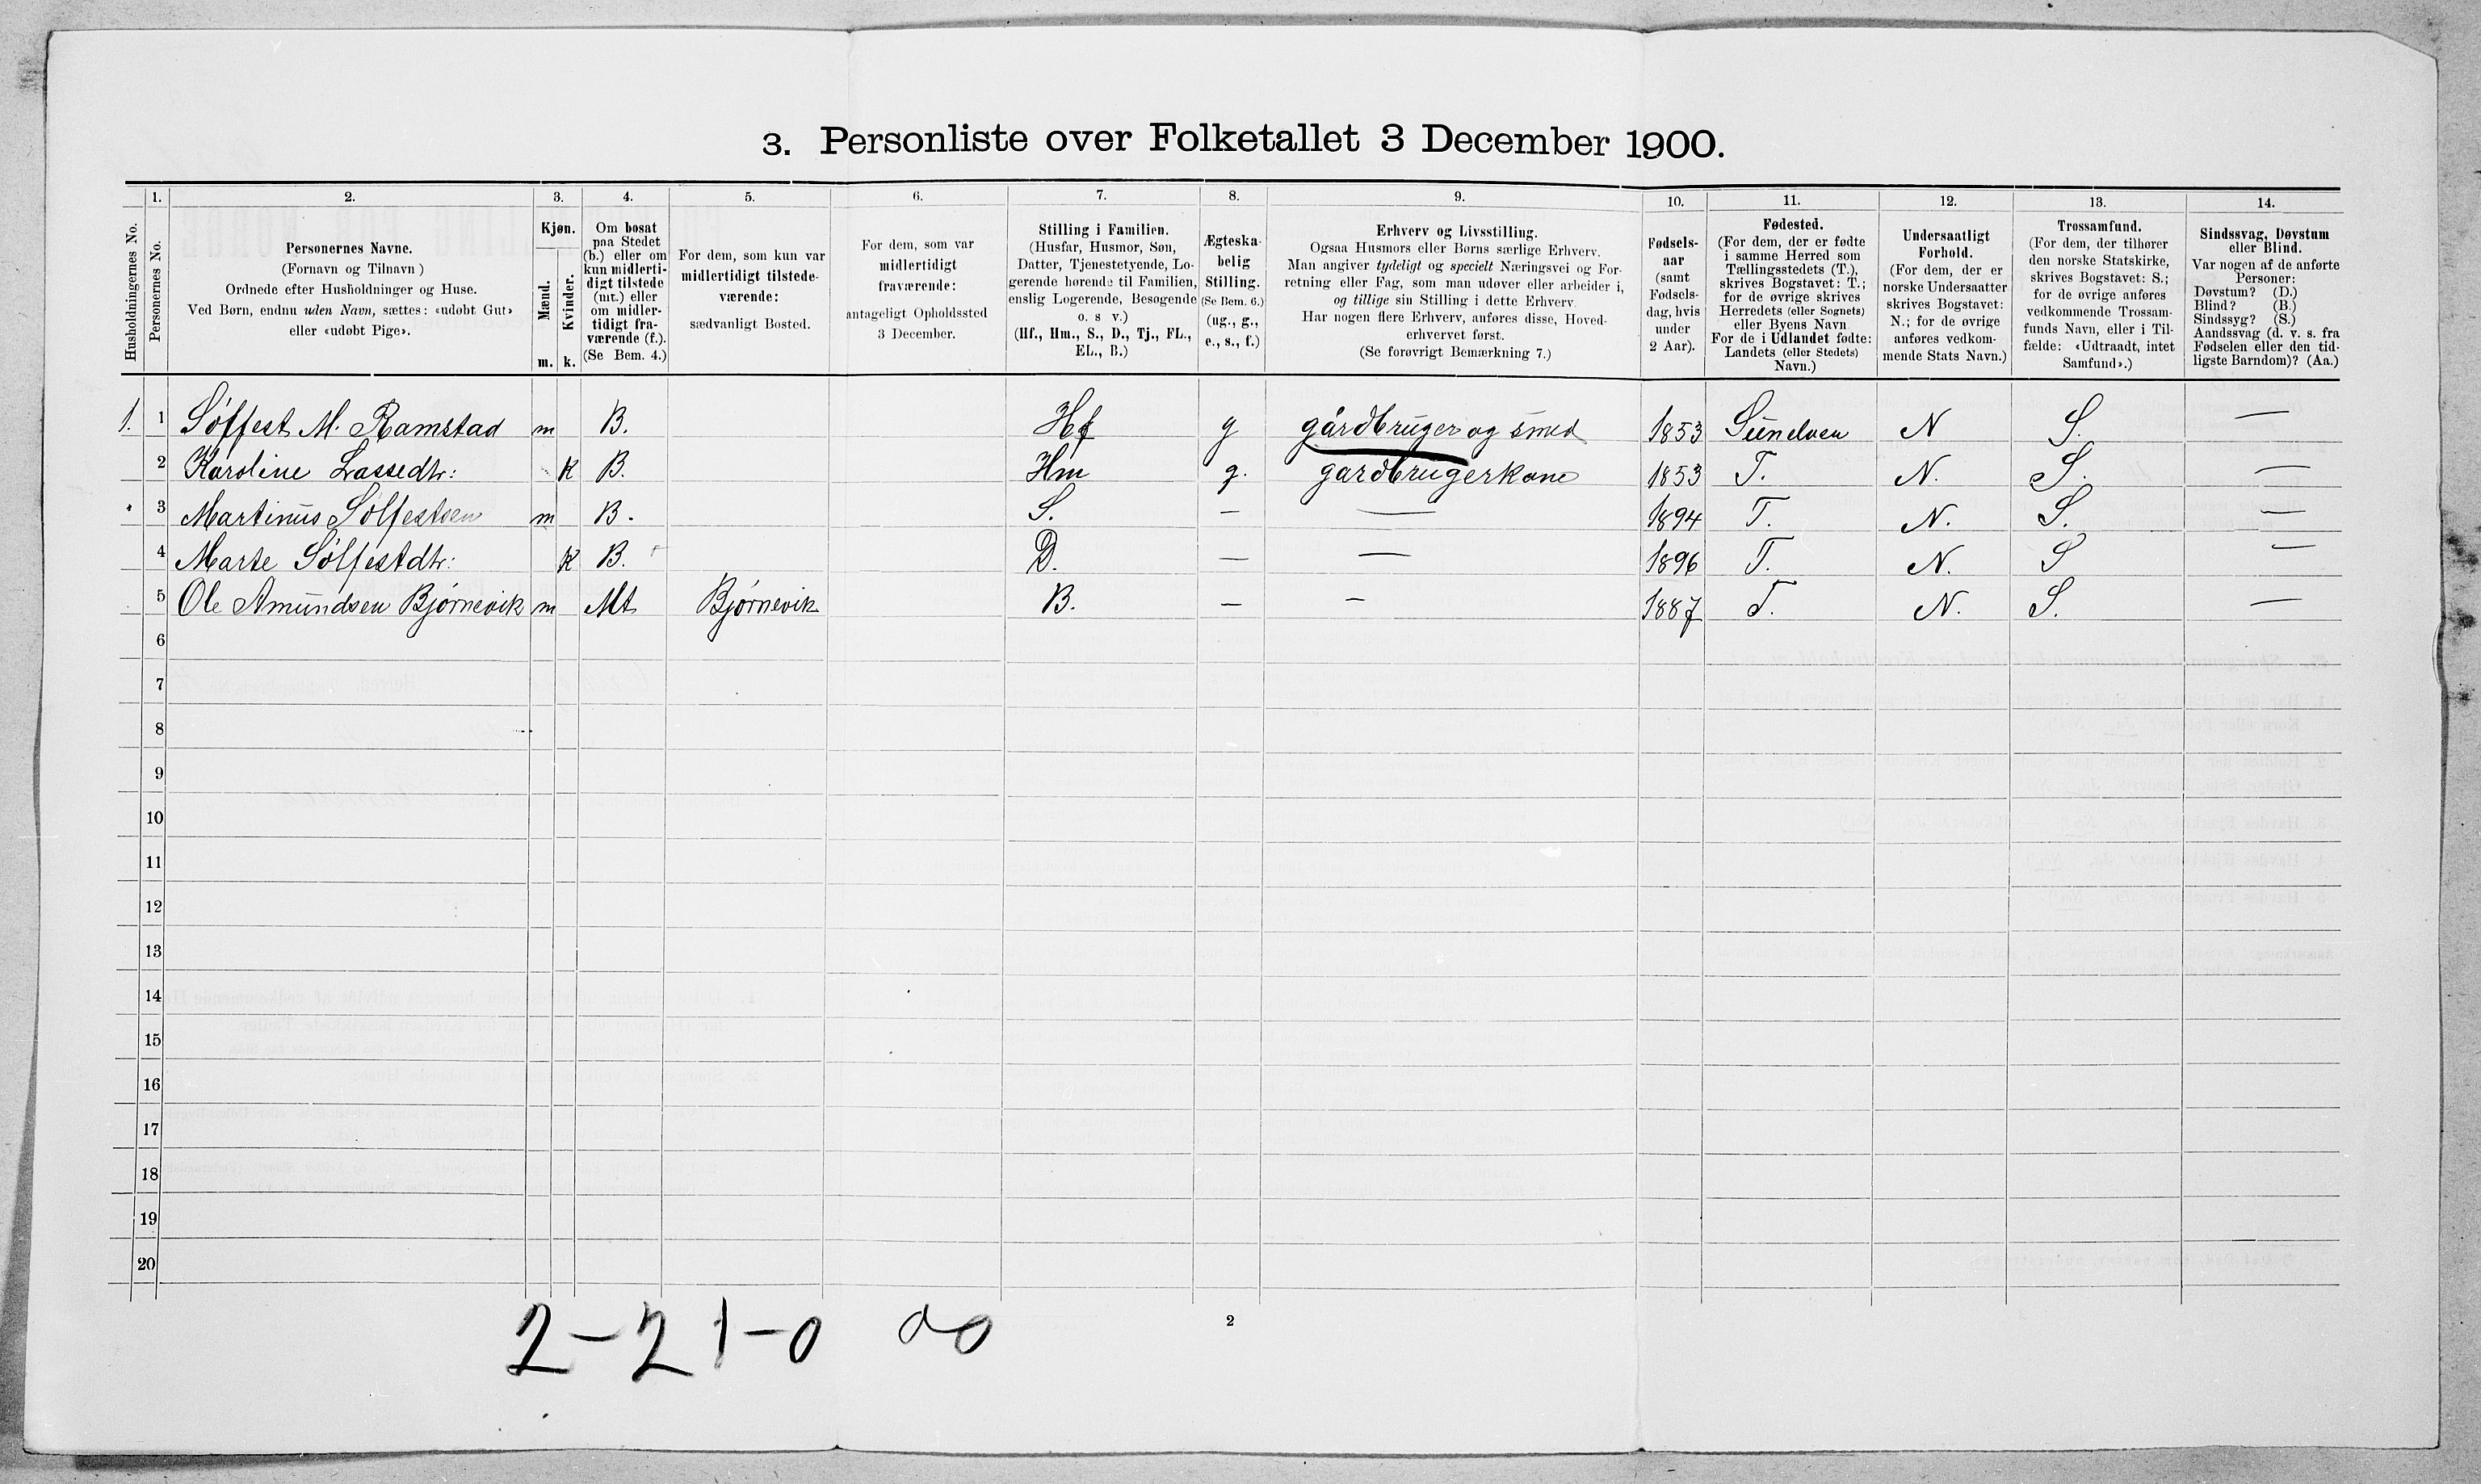 3. Personliste over Folketallet 3 December 1900.
1. 2. 3. 4. 5. 6. 7. 8. 9. 10. 11. 12. 13. 14.
Husholdningernes No.
Personernes No.
Personernes Navne.
(Fornavn og Tilnavn)
Ordnede efter Husholdninger og Huse.
Ved Børn, endnu uden Navn, sættes: «udøbt Gut»
eller «udøbt Pige».
Kjøn.
Mænd.
Kvinder.
m. k.
Om bosat
paa Stedet
(b.) eller om
kun midlerti-
digt tilstede
(mt.) eller
om midler-
tidigt fra-
værende (f.).
(Se Bem. 4.)
For dem, som kun var
midlertidigt tilstede-
værende:
sædvanligt Bosted.
For dem, som var
midlertidigt
fraværende:
antageligt Opholdssted
3 December.
Stilling i Familien.
(Husfar, Husmor, Søn,
Datter, Tjenestetyende, Lo-
gerende hørende til Familien,
enslig Logerende, Besøgende
o. s v.)
(Hf., Hm., S., D., Tj., FL.,
EL., B.)
Ægteska-
belig
Stilling.
(Se Bem. 6.)
(ug., g.,
e., s., f.)
Erhverv og Livsstilling.
Ogsaa Husmors eller Børns særlige Erhverv.
Man angiver tydeligt og specielt Næringsvei og For-
retning eller Fag, som man udøver eller arbeider i,
og tillige sin Stilling i dette Erhverv.
Har nogen flere Erhverv, anføres disse, Hoved-
erhvervet først.
(Se forøvrigt Bemærkning 7.)
Fødsels-
aar
(samt
Fødsels-
dag, hvis
under
2 Aar).
Fødested.
(For dem, der er fødte
i samme Herred som
Tællingsstedets (T.),
skrives Bogstavet: T.;
for de øvrige skrives
Herredets (eller Sognets)
eller Byens Navn
For de i Udlandet fødte:
Landets (eller Stedets)
Navn.)
Undersaatligt
Forhold.
(For dem, der er
norske Undersaatter
skrives Bogstavet:
N.; for de øvrige
anføres vedkom-
mende Stats Navn.)
Trossamfund.
(For dem, der tilhører
den norske Statskirke,
skrives Bogstavet: S.;
for de øvrige anføres
vedkommende Trossam-
funds Navn, eller i Til-
fælde: «Udtraadt, intet
Samfund».)
Sindssvag, Døvstum
eller Blind.
Var nogen af de anførte
Personer:
Døvstum? (D.)
Blind? (B.)
Sindssyg? (S.)
Aandssvag (d. v. s. fra
Fødselen eller den tid-
ligste Barndom)? (Aa.)
1. 1 Søffest M. Ramstad m B. Hf g gårdbruger og smed 1853 Sündven N S. —
2 Karoline Lassedtr: k B. Hm g. gardbrugerkone 1853 T. N. S. —
3 Martinus Sølfestsen m B. S. — — 1894 T. N. S. —
4 Marte Sølfestdtr: k B. D. — — 1896 T. N. S —
5 Ole Amundsen Bjørnevik m Mt Bjørnevik B. — — 1887 T. N. S. —
6
7
8
9
10
11
12
13
14
15
16
17
18
19
20
2 – 2 1 – 0 00
2